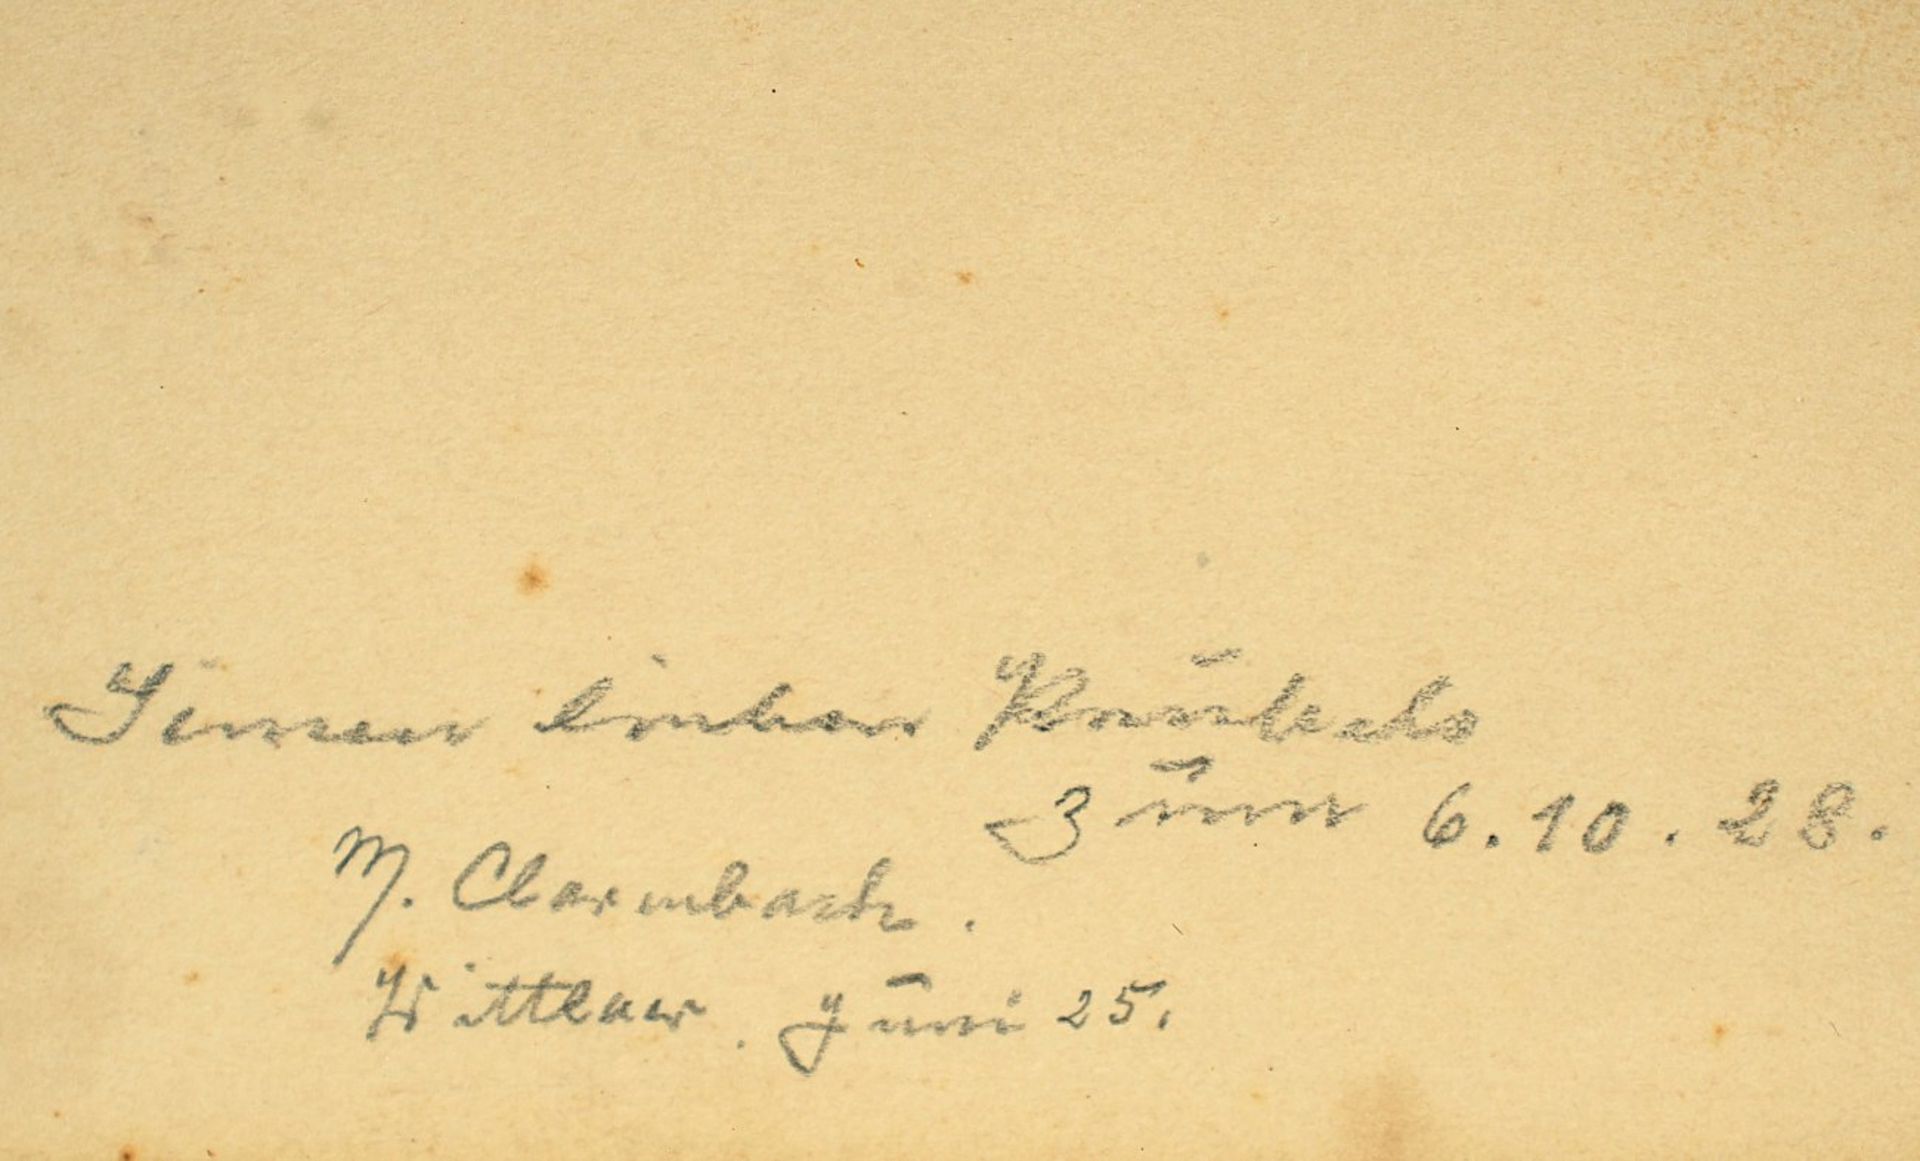 Seinem lieben
zum 6.10.28.
M. Clarenbach.
Wittlaer. Juni 25.